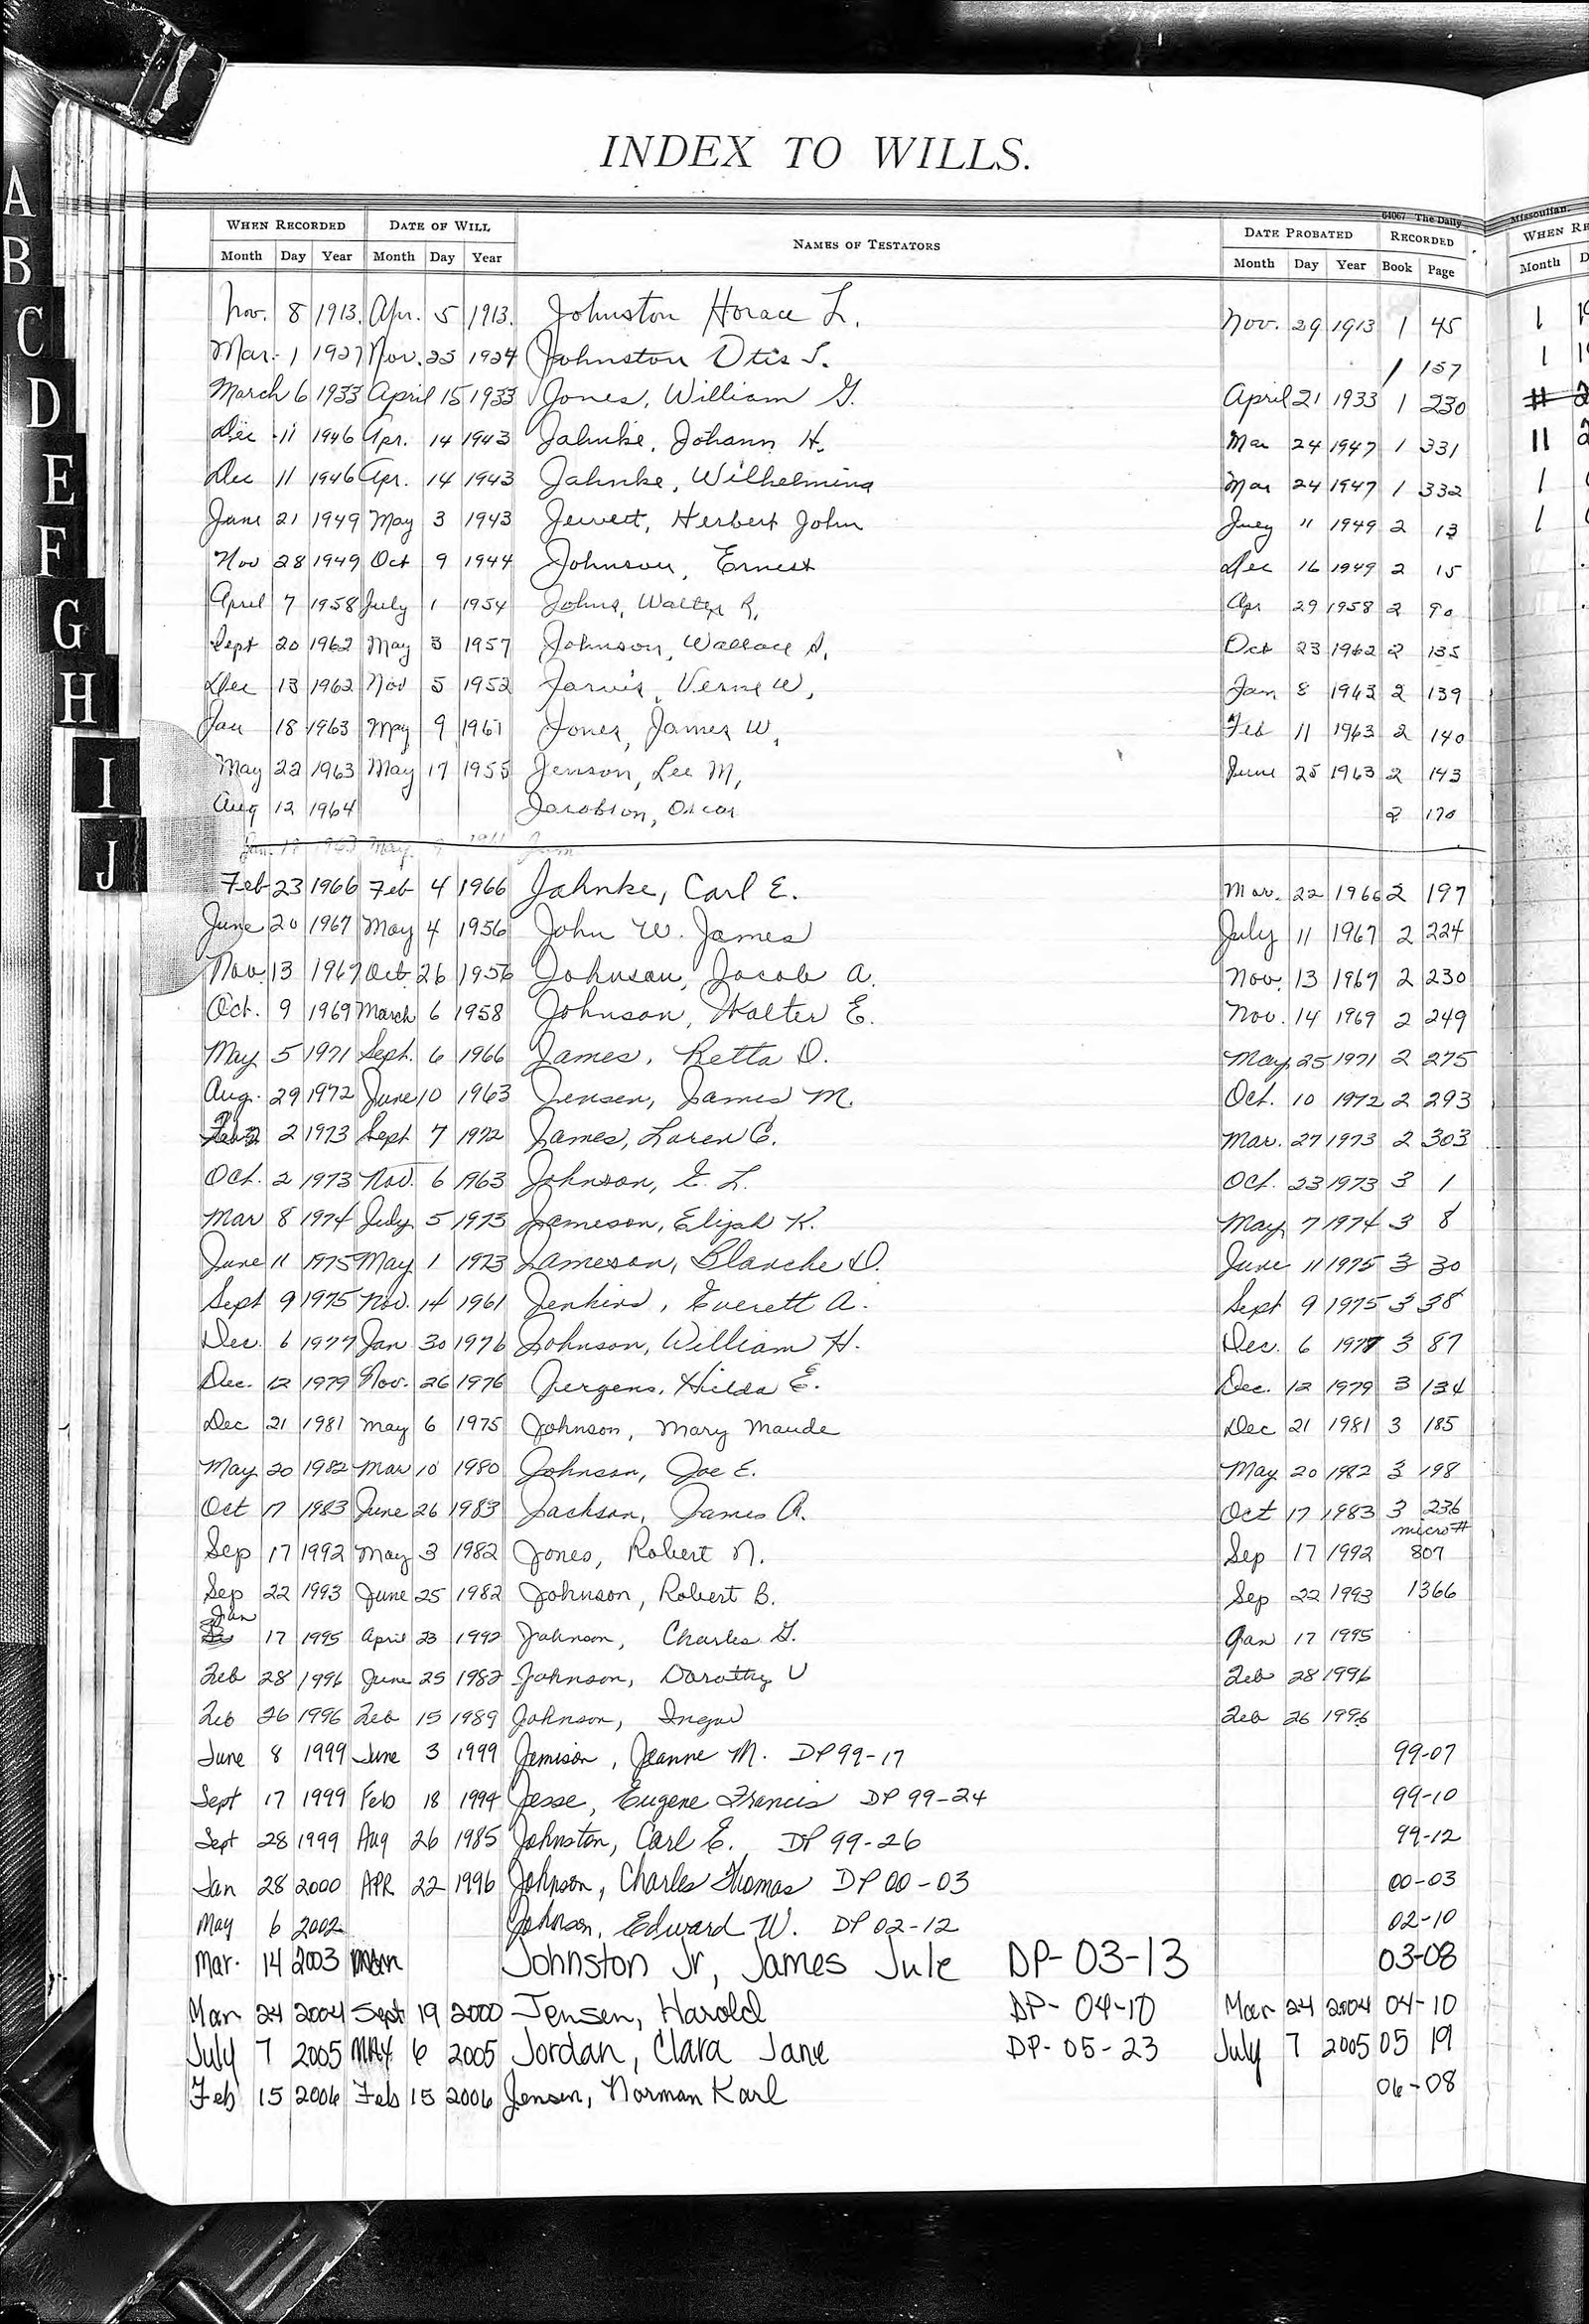 INDEX TO WILLS.
64067 The Daily Missoulian.
WHEN RECORDED DATE OF WILL NAMES OF TESTATORS DATE PROBATED RECORDED
Month Day Year Month Day Year Month Day Year Book Page
Nov. 8 1913. Apr. 5 1913. Johnston Horace L. Nov. 29 1913 1 45
Mar. 1 1927 Nov. 25 1924 Johnston Otis S. 1 157
March 6 1933 April 15 1933 Jones, William G. April 21 1933 1 230
Dec 11 1946 Apr. 14 1943 Jahnke, Johann H. Mar 24 1947 1 331
Dec 11 1946 Apr. 14 1943 Jahnke, Wilhelmina Mar 24 1947 1 332
June 21 1949 May 3 1943 Jewett, Herbert John July 11 1949 2 13
Nov 28 1949 Oct 9 1944 Johnson, Ernest Dec 16 1949 2 15
April 7 1958 July 1 1954 Johns, Walter R. Apr 29 1958 2 90
Sept 20 1962 May 3 1957 Johnson, Wallace A. Oct 23 1962 2 135
Dec 13 1962 Nov 5 1952 Jarvis, Verne W. Jan 8 1963 2 139
Jan 18 1963 May 9 1961 Jones, James W. Feb 11 1963 2 140
May 22 1963 May 17 1955 Jenson, Lee M, June 25 1963 2 143
Aug 12 1964 Jacobson, Oscar 2 170
Feb 23 1966 Feb 4 1966 Jahnke, Carl E. Mar. 22 1966 2 197
June 20 1967 May 4 1956 John W. James July 11 1967 2 224
Nov. 13 1967 Oct. 26 1956 Johnson, Jacob A. Nov. 13 1967 2 230
Oct. 9 1969 March 6 1958 Johnson, Walter E. Nov. 14 1969 2 249
May 5 1971 Sept. 6 1966 James, Retta D. May 25 1971 2 275
Aug. 29 1972 June 10 1963 Jensen, James M. Oct. 10 1972 2 293
2 1973 Sept 7 1972 James, Loren C. Mar. 27 1973 2 303
Oct. 2 1973 Nov. 6 1963 Johnson, E. L. Oct. 23 1973 3 1
Mar 8 1974 July 5 1973 Jameson, Elijah K. May 7 1974 3 8
June 11 1975 May 1 1973 Jameson, Blanche D. June 11 1975 3 30
Sept 9 1975 Nov. 14 1961 Jenkins, Everett A. Sept 9 1975 3 38
Dec. 6 1977 Jan 30 1976 Johnson, William H. Dec. 6 1977 3 87
Dec. 12 1979 Nov. 26 1976 Jurgens, Hilda E. Dec. 12 1979 3 134
Dec 21 1981 May 6 1975 Johnson, Mary Maude Dec 21 1981 3 185
May 20 1982 Mar 10 1980 Johnson, Joe E. May 20 1982 3 198
Oct 17 1983 June 26 1983 Jackson, James A. Oct 17 1983 3 236
micro#
Sep 17 1992 May 3 1982 Jones, Robert N. Sep 17 1992 807
Sep 22 1993 June 25 1982 Johnson, Robert B. Sep 22 1993 1366
Jan 17 1995 April 23 1992 Johnson, Charles G. Jan 17 1995
Feb 28 1996 June 25 1982 Johnson, Dorothy V Feb 28 1996
Feb 26 1996 Feb 15 1989 Johnson, Ingar Feb 26 1996
June 8 1999 June 3 1999 Jemison, Jeanne M. DP 99-17 99-07
Sept 17 1999 Feb 18 1994 Jesse, Eugene Francis DP 99-24 99-10
Sept 28 1999 Aug 26 1985 Johnston, Carl E. DP 99-26 99-12
Jan 28 2000 APR 22 1996 Johnson, Charles Thomas DP 00-03 00-03
May 6 2002 Johnson, Edward W. DP 02-12 02-10
Mar. 14 2003 Johnston Jr, James Jule DP-03-13 03-08
Mar 24 2004 Sept 19 2000 Jensen, Harold DP-04-10 Mar 24 2004 04-10
July 7 2005 MAY 6 2005 Jordan, Clara Jane DP-05-23 July 7 2005 05 19
Feb 15 2006 Feb 15 2006 Jensen, Norman Karl 06-08
A
B
C
D
E
F
G
H
I
J